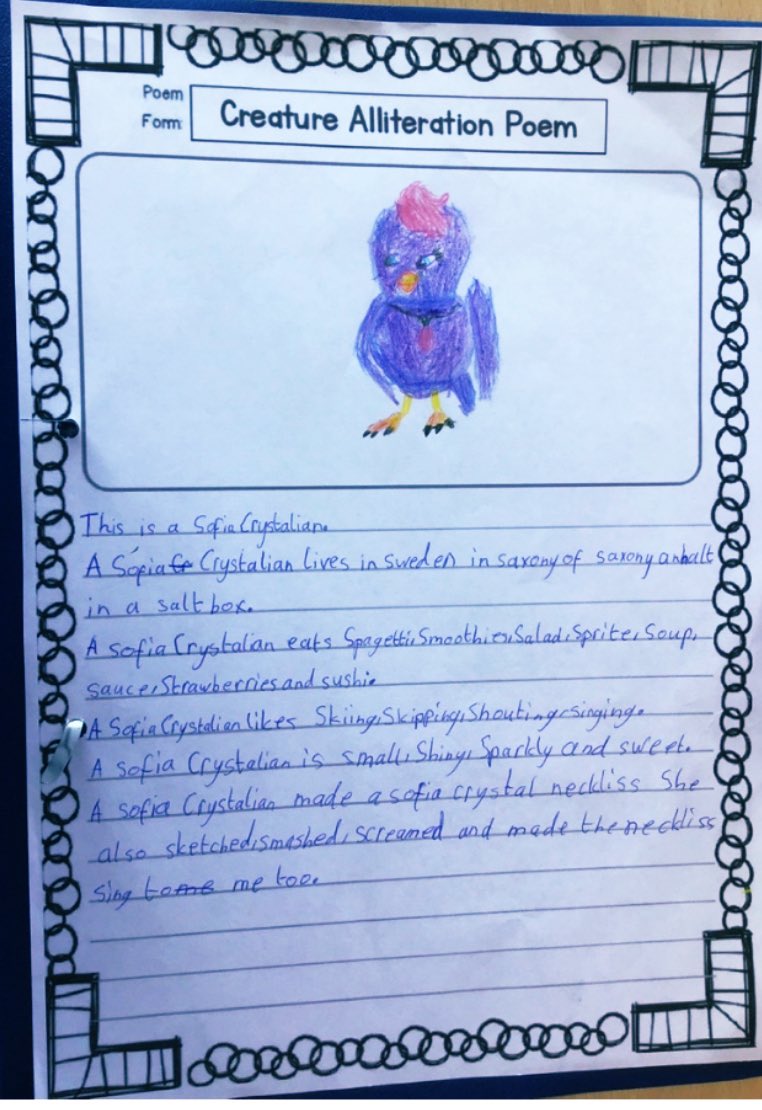 Poem
Form:
Creature Alliteration Poem
This is a Sofia Crystalian.
A Sofia Crystalian lives in sweden in saxony of saxony anhalt
in a salt box.
A sofia Crystalian eats Spagetti, Smoothies, Salad, Sprite, Soup,
sauce, Strawberries and sushi.
A Sofia Crystalian likes Skiing, Skipping, Shouting, singing.
A sofia Crystalian is small, Shiny, Sparkly and sweet.
A sofia Crystalian made a sofia crystal neckliss She
also sketched, smashed, screamed and made the neckliss
sing to me too.